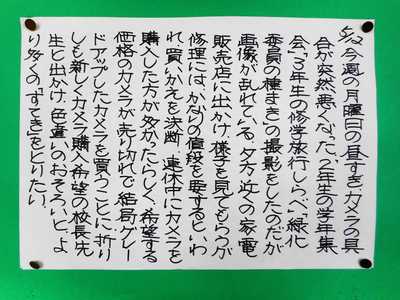 5/12 今週の月曜日の昼すぎ、カメラの具
合が突然、悪くなった。2年生の学年集
会、「3年生の修学旅行しらべ」、「緑化
委員の種まき」の撮影をしたのだが
画像が乱れている。夕方近くの家電
販売店に出かけ、様子を見てもらうが
修理には、かなりの値段を要するといわ
れ、買いかえを決断。連休中にカメラを
購入した方が多かったらしく、希望する
価格のカメラが売り切れで結局、グレー
ドアップしたカメラを買うことに。折り
しも新しくカメラ購入希望の校長先
生と出かけ、色違いのおそろい、と、よ
り多くの「すてき」をとりたい。